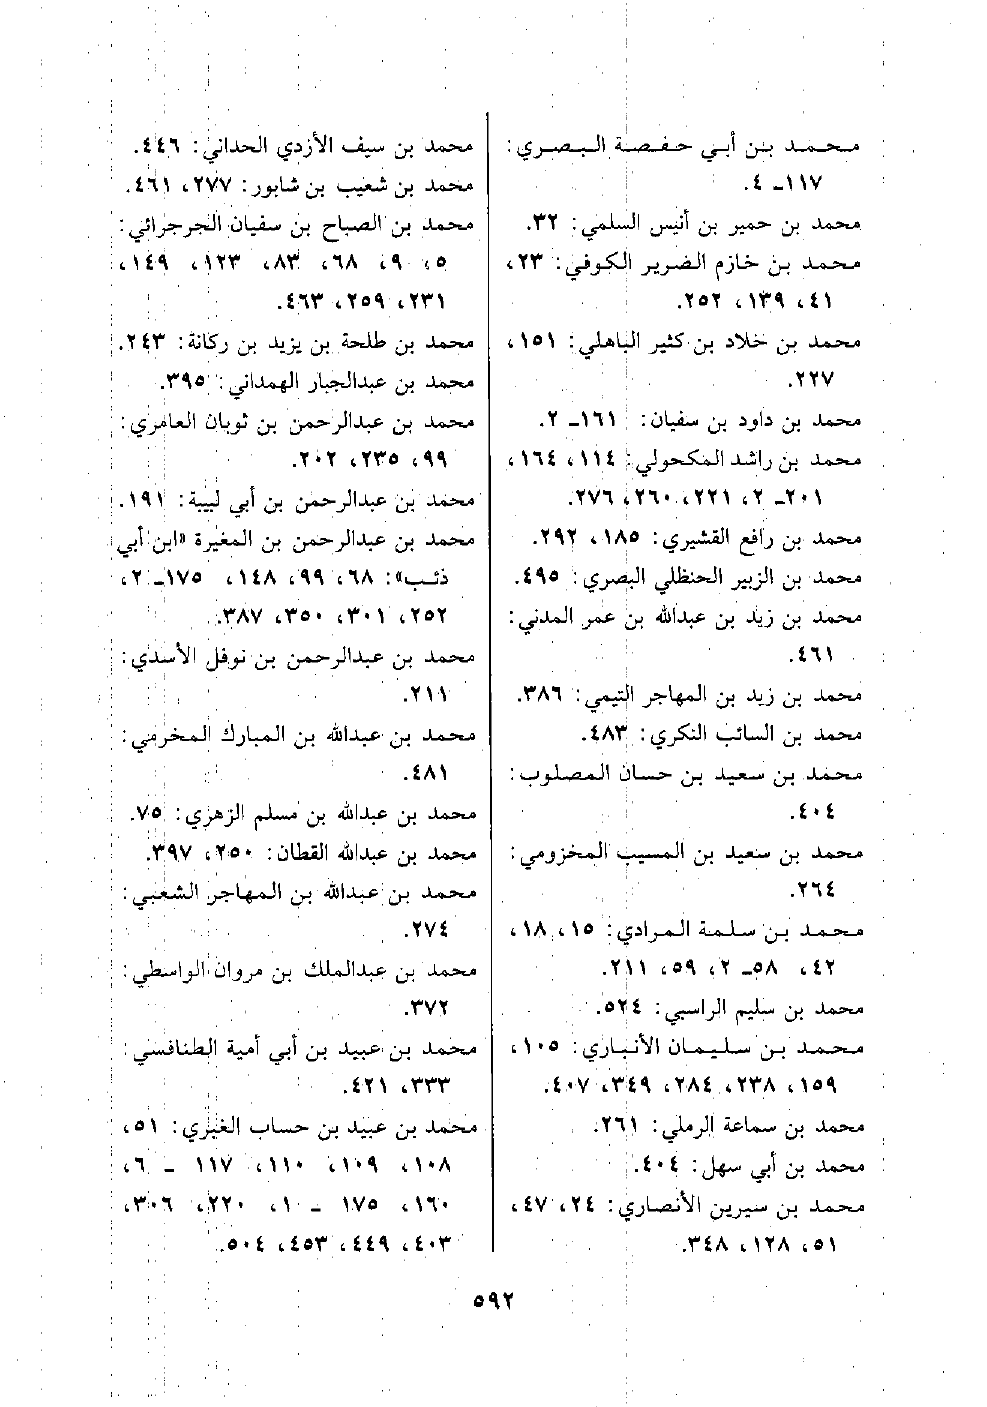 محمد بن أبي حفصة البصري:
١١٧ـ ٤.
محمد بن حمير بن أنيس السلمي: ٣٢.
محمد بن خازم الضرير الكوفي: ٢٣،
٤١، ١٣٩، ٢٥٢.
محمد بن خلاد بن كثير الباهلي: ١٥١،
٢٢٧.
محمد بن داود بن سفيان: ١٦١ـ ٢.
محمد بن راشد المكحولي: ١١٤، ١٦٤،
٢٠١ـ ٢، ٢٢١، ٢٦٠، ٢٧٦.
محمد بن رافع القشيري: ١٨٥، ٢٩٢.
محمد بن الزبير الحنظلي البصري: ٤٩٥.
محمد بن زيد بن عبدالله بن عمر المدني:
٤٦١.
محمد بن زيد بن المهاجر التيمي: ٣٨٦.
محمد بن السائب النكري: ٤٨٣.
محمد بن سعيد بن حسان المصلوب:
٤٠٤.
محمد بن سعيد بن المسيب المخزومي:
٢٦٤.
محمد بن سلمة المرادي: ١٥، ١٨،
٤٢، ٥٨ـ ٢، ٥٩، ٢١١.
محمد بن سليم الراسبي: ٥٢٤.
محمد بن سليمان الأنباري: ١٠٥،
١٥٩، ٢٣٨، ٢٨٤، ٣٤٩، ٤٠٧.
محمد بن سماعة الرملي: ٢٦١.
محمد بن أبي سهل: ٤٠٤.
محمد بن سيرين الأنصاري: ٢٤، ٤٧،
٥١، ١٢٨، ٣٤٨.
محمد بن سيف الأزدي الحداني: ٤٤٦.
محمد بن شعيب بن شابور: ٢٧٧، ٤٦١.
محمد بن الصباح بن سفيان الجرجرائي:
٥، ٩، ٦٨، ٨٣، ١٢٣، ١٤٩،
٢٣١، ٢٥٩، ٤٦٣.
محمد بن طلحة بن يزيد بن ركانة: ٢٤٣.
محمد بن عبدالجبار الهمداني: ٣٩٥.
محمد بن عبدالرحمن بن ثوبان العامري:
٩٩، ٢٣٥، ٢٠٢.
محمد بن عبدالرحمن بن أبي لبيبة: ١٩١.
محمد بن عبدالرحمن بن المغيرة «ابن أبي
ذئب»: ٦٨، ٩٩، ١٤٨، ١٧٥ـ ٢،
٢٥٢، ٣٠١، ٣٥٠، ٣٨٧.
محمد بن عبدالرحمن بن نوفل الأسدي:
٢١١.
محمد بن عبدالله بن المبارك المخرمي:
٤٨١.
محمد بن عبدالله بن مسلم الزهري: ٧٥.
محمد بن عبدالله القطان: ٢٥٠، ٣٩٧.
محمد بن عبدالله بن المهاجر الشعبي:
٢٧٤.
محمد بن عبدالملك بن مروان الواسطي:
٣٧٢.
محمد بن عبيد بن أبي أمية الطنافسي:
٣٣٣، ٤٢١.
محمد بن عبيد بن حساب الغبري: ٥١،
١٠٨، ١٠٩، ١١٠، ١١٧ ـ ٦،
١٦٠، ١٧٥ ـ ١، ٢٢٠، ٣٠٦،
٤٠٣، ٤٤٩، ٤٥٣، ٥٠٤.
٥٩٢